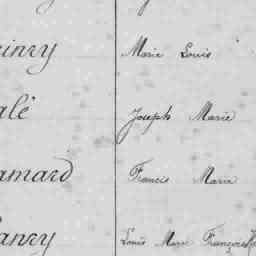 uinry Marie Louis
alé Joseph Marie
amard Francis Marie
anry Louis Marie François